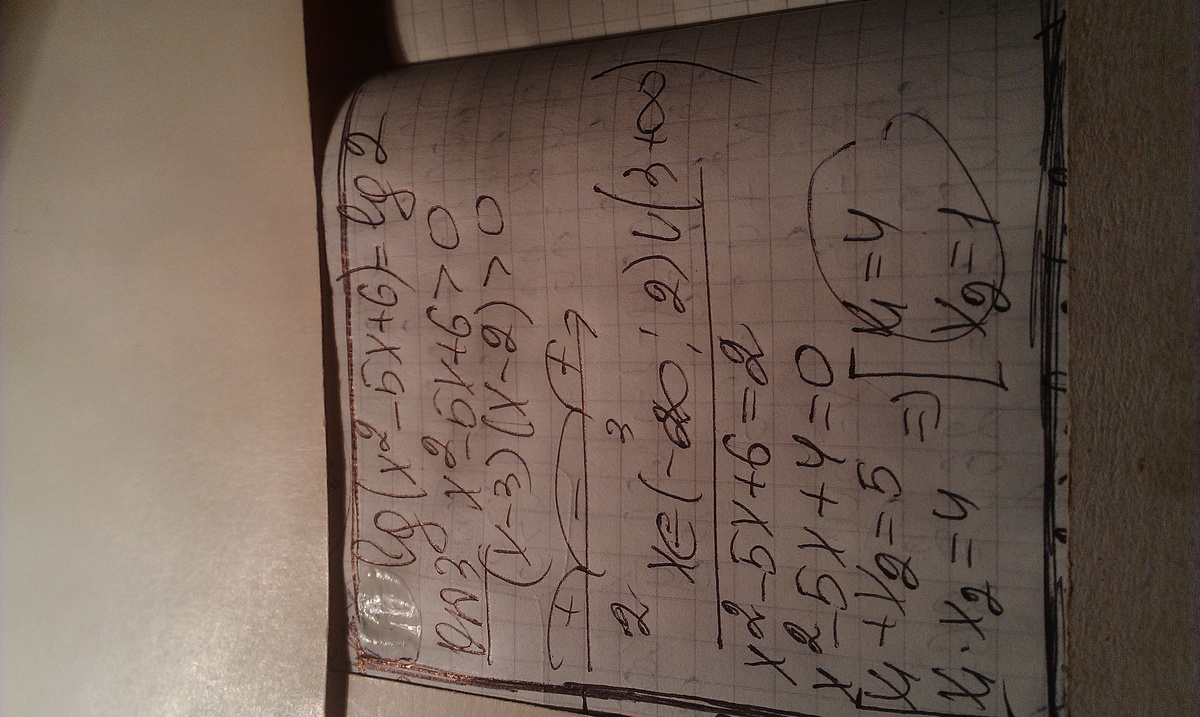 lg(x²-5x+6)=lg2
ОДЗ x²-5x+6>0
(x-3)(x-2)>0
+ - +
2 3
x∈(-∞;2)∪(3+∞)
x²-5x+6=2
x²-5x+4=0
[x₁+x₂=5 => [x₁=4
[x₁·x₂=4 [x₂=1